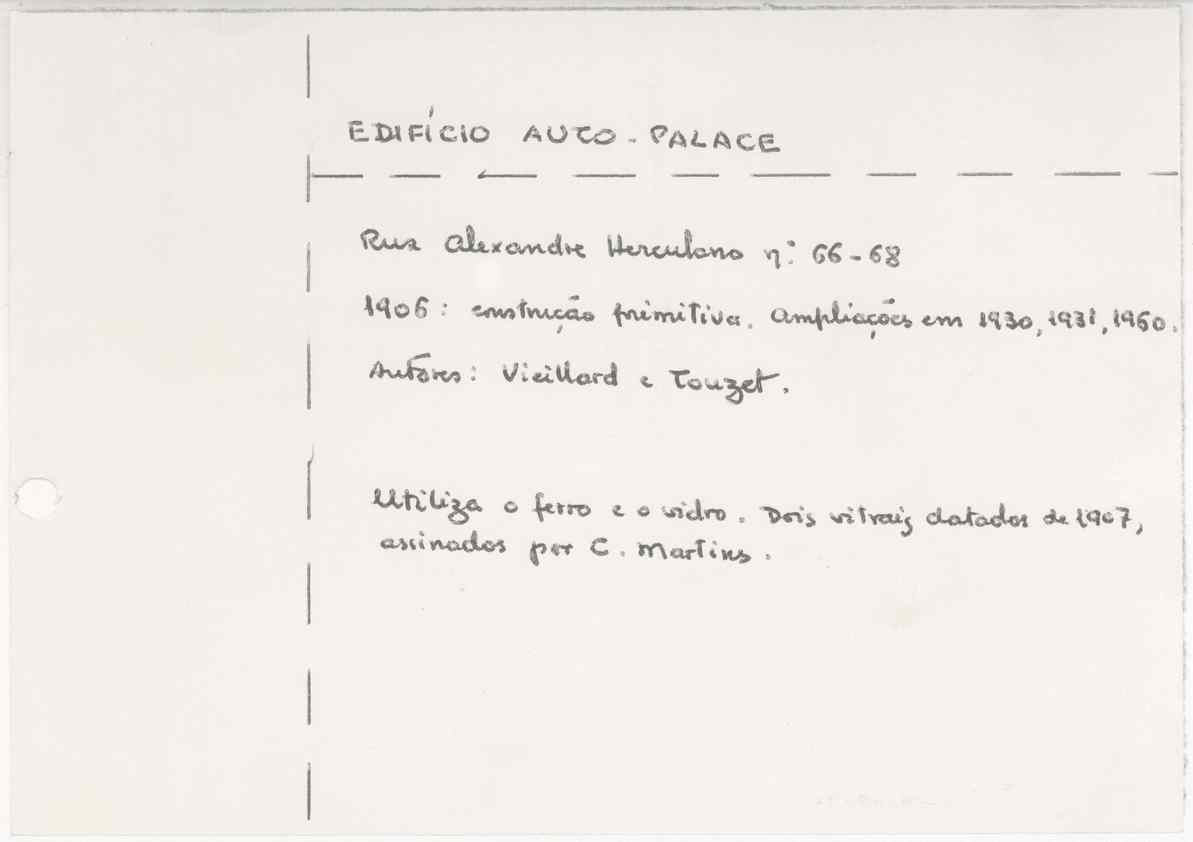 EDIFÍCIO AUTO-PALACE
Rua Alexandre Herculano nº 66-68
1906: construção primitiva. Ampliações em 1930, 1931, 1960.
Autores: Vieillard e Touzet.
Utiliza o ferro e o vidro. Dois vitrais datados de 1907,
assinados por C. Martins.